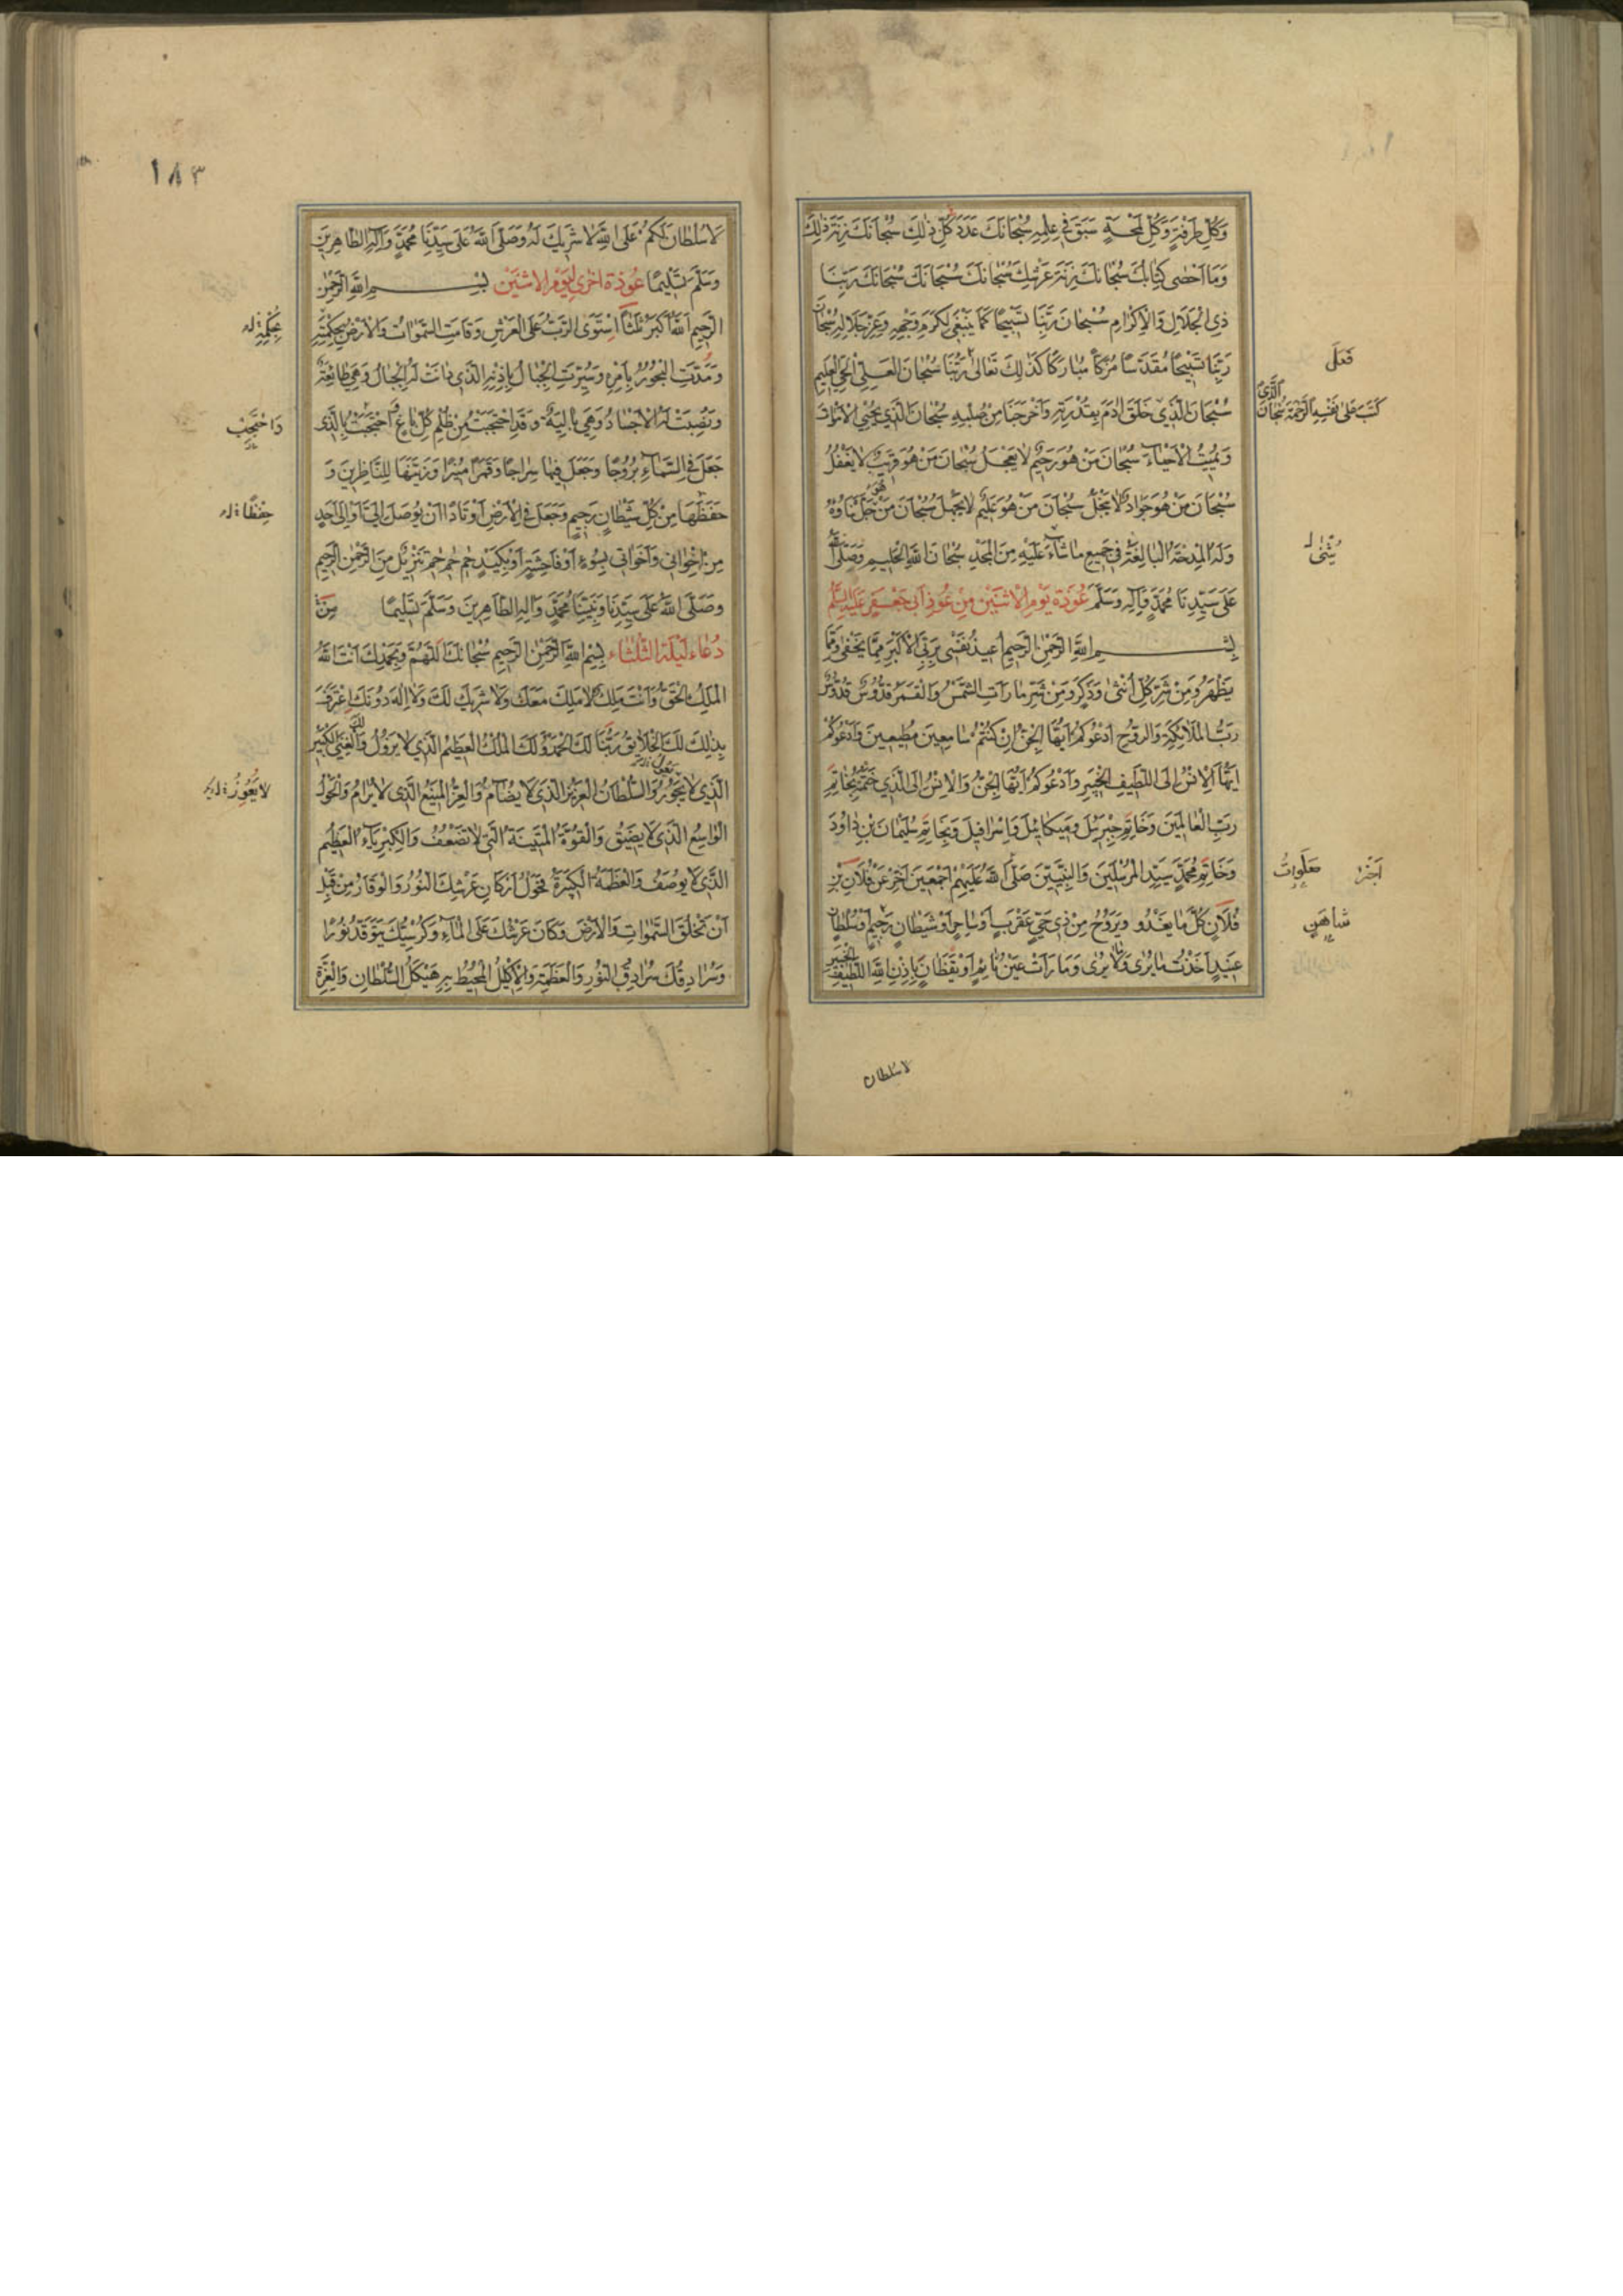 وَكُلِّ طَرْفَةٍ وَكُلِّ لَمْحَةٍ سَبَقَ فِي عِلْمِهِ سُبْحَانَكَ عَدَدَ كُلِّ ذٰلِكَ سُبْحَانَكَ زِنَةَ ذٰلِكَ
وَمَا اَحْصٰى كِتَابُكَ سُبْحَانَكَ زِنَةَ عَرْشِكَ سُبْحَانَكَ سُبْحَانَكَ سُبْحَانَكَ سُبْحَانَ رَبِّنَا
ذِي الْجَلَالِ وَالْاِكْرَامِ سُبْحَانَ رَبِّنَا تَسْبِيحًا كَمَا يَنْبَغِي لِكَرَمِ وَجْهِهِ وَعِزِّ جَلَالِهِ سُبْحَانَ
رَبِّنَا تَسْبِيحًا مُقَدَّسًا مُزَكًّا مُبَارَكًا كَذٰلِكَ تَعَالٰى رَبُّنَا سُبْحَانَ الْحَيِّ الْعَلِيمِ
فَعَلَ
سُبْحَانَ الَّذِي خَلَقَ اٰدَمَ بِقُدْرَتِهِ وَاَخْرَجَنَا مِنْ صُلْبِهِ سُبْحَانَ الَّذِي يُحْيِي الْاَمْوَاتَ
كَتَبَ عَلٰى نَفْسِهِ الرَّحْمَةَ سُبْحَانَ الَّذِي
وَيُمِيتُ الْاَحْيَاءَ سُبْحَانَ مَنْ هُوَ رَحِيمٌ لَا يَعْجَلُ سُبْحَانَ مَنْ هُوَ قَرِيبٌ لَا يَغْفُلُ
سُبْحَانَ مَنْ هُوَ جَوَادٌ لَا يَبْخَلُ سُبْحَانَ مَنْ هُوَ عَلِيمٌ لَا يَجْهَلُ سُبْحَانَ مَنْ هُوَ جَلَّ ثَنَاؤُهُ
وَلَهُ الْمِدْحَةُ الْبَالِغَةُ فِي جَمِيعِ مَا شَاءَ عَلَيْهِ مِنَ الْمَجْدِ سُبْحَانَ اللّٰهِ الْحَلِيمِ وَصَلَّى اللّٰهُ
عَلٰى سَيِّدِنَا مُحَمَّدٍ وَاٰلِهِ وَسَلَّمَ عُوذَةُ يَوْمِ الْاِثْنَيْنِ مِنْ عُوَذِ اَبِي جَعْفَرٍ عَلَيْهِ السَّلَمُ
بِسْمِ اللّٰهِ الرَّحْمٰنِ الرَّحِيمِ اُعِيذُ نَفْسِي بِرَبِّيَ الْاَكْبَرِ مِمَّا يَخْفٰى وَمَا
يَظْهَرُ وَمِنْ شَرِّ كُلِّ اُنْثٰى وَذَكَرٍ وَمِنْ شَرِّ مَا رَاَتِ الشَّمْسُ وَالْقَمَرُ قُدُّوسٌ قُدُّوسٌ
رَبُّ الْمَلَائِكَةِ وَالرُّوحِ اَدْعُوكُمْ اَيُّهَا الْجِنُّ اِنْ كُنْتُمْ سَامِعِينَ مُطِيعِينَ وَاَدْعُوكُمْ
اَيُّهَا الْاِنْسُ اِلَى اللَّطِيفِ الْخَبِيرِ وَاَدْعُوكُمْ اَيُّهَا الْجِنُّ وَالْاِنْسُ اِلَى الَّذِي خَتَمْتُهُ بِخَاتَمِ
رَبِّ الْعَالَمِينَ وَخَاتَمِ جِبْرَئِيلَ وَمِيكَائِيلَ وَاِسْرَافِيلَ وَبِخَاتَمِ سُلَيْمَانَ بْنِ دَاوُدَ
وَخَاتَمِ مُحَمَّدٍ سَيِّدِ الْمُرْسَلِينَ وَالنَّبِيِّينَ صَلَّى اللّٰهُ عَلَيْهِمْ اَجْمَعِينَ اَخِّرْ عَنْ فُلَانِ بْنِ
صَلَوَاتُ
فُلَانٍ كُلَّ مَا يَغْدُو وَيَرُوحُ مِنْ ذِي حَيٍّ عَقْرَبٍ اَوْ سَاحِرٍ اَوْ شَيْطَانٍ رَجِيمٍ اَوْ سُلْطَانٍ
عَنِيدٍ اَخَذْتُ مَا يُرٰى وَمَا لَا يُرٰى وَمَا رَاَتْ عَيْنُ نَائِمٍ اَوْ يَقْظَانَ بِاِذْنِ اللّٰهِ اللَّطِيفِ الْخَبِيرِ
لا سلطان
١٨٣
لَا سُلْطَانَ لَكُمْ عَلَى اللّٰهِ لَا شَرِيكَ لَهُ وَصَلَّى اللّٰهُ عَلٰى سَيِّدِنَا مُحَمَّدٍ وَاٰلِهِ الطَّاهِرِينَ
وَسَلَّمَ تَسْلِيمًا عُوذَةٌ اُخْرٰى لِيَوْمِ الْاِثْنَيْنِ بِسْمِ اللّٰهِ الرَّحْمٰنِ
الرَّحِيمِ اَللّٰهُ اَكْبَرُ ثَلٰثًا اِسْتَوَى الرَّبُّ عَلَى الْعَرْشِ وَقَامَتِ السَّمٰوَاتُ وَالْاَرْضُ بِحِكْمَتِهِ
وَمُدَّتِ الْبُحُورُ بِاَمْرِهِ وَسُيِّرَتِ الْجِبَالُ بِاِذْنِهِ الَّذِي دَانَتْ لَهُ الْجِبَالُ وَهِيَ طَائِعَةٌ
وَنُصِبَتْ لَهُ الْاَجْسَادُ وَهِيَ بَالِيَةٌ وَقَدِ احْتَجَبْتُ مِنْ ظُلْمِ كُلِّ بَاغٍ اِحْتَجَبْتُ بِالَّذِي
وَاحْتَجَبَ
جَعَلَ فِي السَّمَاءِ بُرُوجًا وَجَعَلَ فِيهَا سِرَاجًا وَقَمَرًا مُنِيرًا وَزَيَّنَهَا لِلنَّاظِرِينَ وَ
حَفِظَهَا مِنْ كُلِّ شَيْطَانٍ رَجِيمٍ وَجَعَلَ فِي الْاَرْضِ اَوْتَادًا اَنْ يُوصَلَ اِلَيَّ اَوْ اِلٰى اَحَدٍ
مِنْ اِخْوَانِي وَاَخَوَاتِي بِسُوءٍ اَوْ فَاحِشَةٍ اَوْ بِكَيْدٍ حٰم حٰم حٰم تَنْزِيلٌ مِنَ الرَّحْمٰنِ الرَّحِيمِ
وَصَلَّى اللّٰهُ عَلٰى سَيِّدِنَا وَنَبِيِّنَا مُحَمَّدٍ وَاٰلِهِ الطَّاهِرِينَ وَسَلَّمَ تَسْلِيمًا
دُعَاءُ لَيْلَةِ الثَّلٰثَاءِ بِسْمِ اللّٰهِ الرَّحْمٰنِ الرَّحِيمِ سُبْحَانَكَ اللّٰهُمَّ وَبِحَمْدِكَ اَنْتَ اللّٰهُ
الْمَلِكُ الْحَقُّ وَاَنْتَ مَلِكٌ لَا مَلِكَ مَعَكَ وَلَا شَرِيكَ لَكَ وَلَا اِلٰهَ دُونَكَ اِعْتَرَفَ
بِذٰلِكَ لَكَ الْخَلَائِقُ رَبَّنَا لَكَ الْحَمْدُ وَلَكَ الْمُلْكُ الْعَظِيمُ الَّذِي لَا يَزُولُ وَالْغِنَى الْكَبِيرُ
الَّذِي لَا يَجُورُ وَالسُّلْطَانُ الْعَزِيزُ الَّذِي لَا يُضَامُ وَالْعِزُّ الْمَنِيعُ الَّذِي لَا يُرَامُ وَالْحَوْلُ
لَا يَعُوزُ
الْوَاسِعُ الَّذِي لَا يَضِيقُ وَالْقُوَّةُ الْمَتِينَةُ الَّتِي لَا تَضْعُفُ وَالْكِبْرِيَاءُ الْعَظِيمُ
الَّذِي لَا يُوصَفُ وَالْعَظَمَةُ الْكَبِيرَةُ فَحَوْلَ اَرْكَانِ عَرْشِكَ النُّورُ وَالْوَقَارُ مِنْ قَبْلِ
اَنْ تَخْلُقَ السَّمٰوَاتِ وَالْاَرْضَ وَكَانَ عَرْشُكَ عَلَى الْمَاءِ وَكُرْسِيُّكَ يَتَوَقَّدُ نُورًا
وَسُرَادِقُكَ سُرَادِقُ النُّورِ وَالْعَظَمَةِ وَالْاِكْلِيلُ الْمُحِيطُ بِهِ هَيْكَلُ السُّلْطَانِ وَالْعِزَّةِ